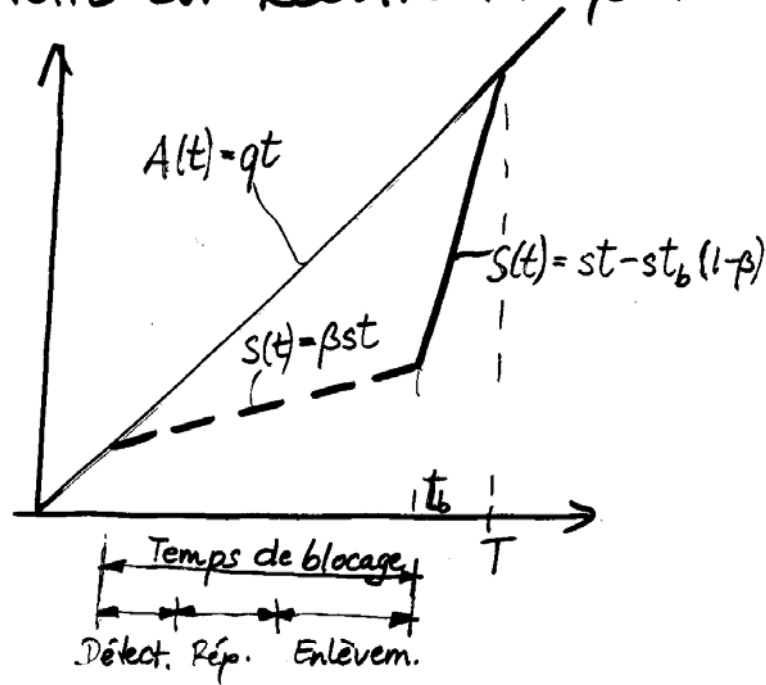 A(t)=qt
S(t)=st-st_b(1-β)
S(t)=βst
t_b
T
Temps de blocage
Détect. Rép. Enlèvem.